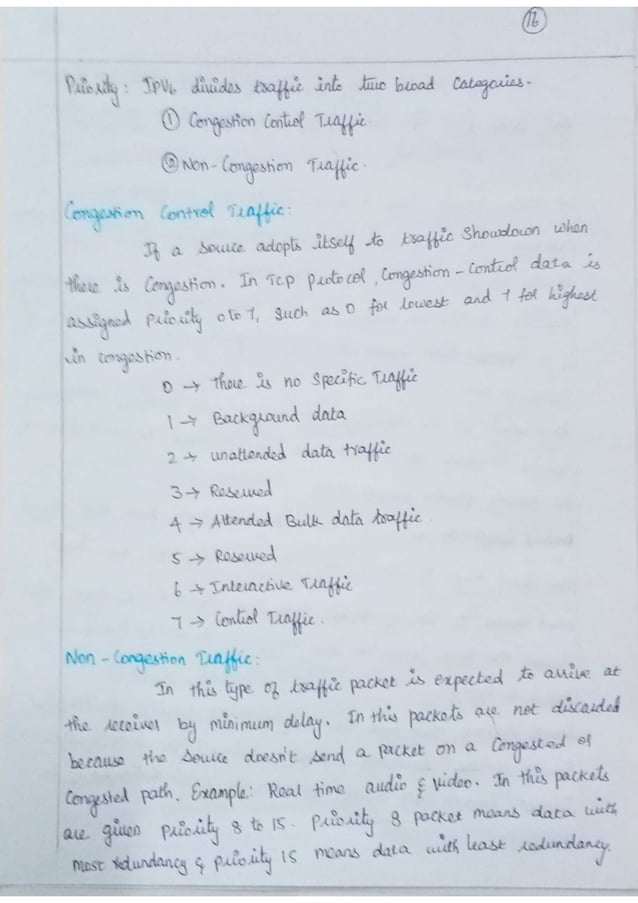 16
Priority: IPV6 divides traffic into two broad Categories.
① Congestion Control Traffic.
② Non-Congestion Traffic.
Congestion Control Traffic:
If a source adopts itself to traffic Showdown when
there is Congestion. In TCP protocol, Congestion-Control data is
assigned Priority 0 to 7, Such as 0 for lowest and 7 for highest
in congestion.
0 → There is no Specific Traffic
1 → Background data
2 → unattended data traffic
3 → Reserved
4 → Attended Bulk data traffic
5 → Reserved
6 → Interactive Traffic
7 → Control Traffic.
Non-Congestion Traffic:
In this type of traffic packet is expected to arrive at
the receiver by minimum delay. In this packets are not discarded
because the source doesn't send a packet on a Congested of
Congested path. Example: Real time audio & video. In this packets
are given priority 8 to 15. Priority 8 packet means data with
most redundancy & priority 15 means data with least redundancy.